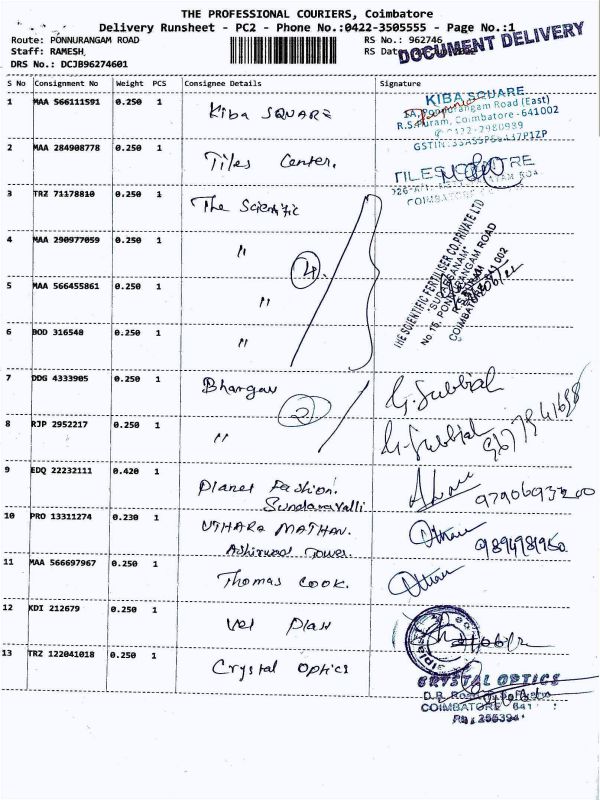 THE PROFESSIONAL COURIERS, Coimbatore
Delivery Runsheet - PC2 - Phone No.:0422-3505555 - Page No.:1
Route: PONNURANGAM ROAD
RS No.: 962746
Staff: RAMESH
RS Dat
DOCUMENT DELIVERY
DRS No.: DCJB96274601
S No Consignment No Weight PCS Consignee Details Signature
1 MAA 566111591 0.250 1 Kiba SQUARE
KIBA SQUARE
1A, Ponnurangam Road (East)
R.S.Puram, Coimbatore - 641002
2 MAA 284908778 0.250 1 Tiles Center.
COIMBATORE
3 TRZ 71178810 0.250 1 The Scientific
4 MAA 290977059 0.250 1 "
4.
5 MAA 566455861 0.250 1 "
6 BOD 316548 0.250 1 "
THE SCIENTIFIC FERTILISER CO.PRIVATE LTD
No 15, PONNURANGAM ROAD
7 DDG 4333905 0.250 1 Bhargav G.Subbiah
2
8 RJP 2952217 0.250 1 " G.Subbiah
9 EDQ 22232111 0.420 1 Planet Fashion.
Sundaravalli
10 PRO 13311274 0.230 1 UTHARA MATHAN.
9894981950
Ashirwad Tower.
11 MAA 566697967 0.250 1 Thomas Cook.
12 KDI 212679 0.250 1
13 TRZ 122041018 0.250 1 Crystal Optics
CRYSTAL OPTICS
COIMBATORE 641